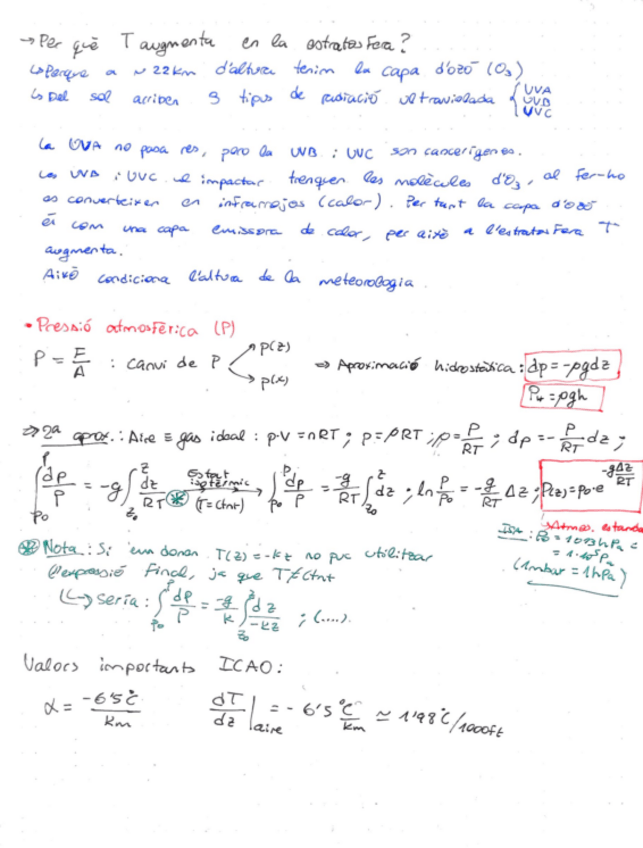 → Per què T augmenta en la estratosfera?
↳ Perque a ~ 22 km d'altura tenim la capa d'ozó (O₃)
↳ Del sol arriben 3 tipus de radiació ultraviolada { UVA UVB UVC
La UVA no passa res, pero la UVB i UVC son cancerígenes.
Les UVB i UVC al impactar trenquen les molècules d'O₃, al fer-ho
es converteixen en infrarojos (calor). Per tant la capa d'ozó
és com una capa emissora de calor, per això a l'estratosfera T
augmenta.
Això condiciona l'altura de la meteorologia.
• Pressió atmosfèrica (P)
P = F/A : canvi de P → P(z) → P(x) ⇒ Aproximació hidrostàtica : dp = -ρgdz
P₄ = ρgh
⇒ 2ª aprox. : Aire ≡ gas ideal : p·V = nRT ; p = ρRT ; ρ = P/RT ; dp = - P/RT dz ;
∫_{p₀}^{p} dp/P = -g ∫_{z₀}^{z} dz/RT ⊛ Estrat isotèrmic (T = ctnt) → ∫_{p₀}^{p} dp/P = -g/RT ∫_{z₀}^{z} dz ; ln P/P₀ = -g/RT Δz ; P(z) = p₀·e^{-gΔz/RT}
↳ Atmos. estanda
ISA : P₀ = 1013 hPa =
= 1·10⁵ Pa
(1 mbar = 1 hPa)
⊛ Nota : Si em donen T(z) = -kz no puc utilitzar
l'expressió final, ja que T ≠ ctnt
↳ seria : ∫_{p₀}^{p} dp/P = -g/k ∫_{z₀}^{z} dz/-kz ; (....)
Valors importants ICAO :
α = -6'5°C/km dT/dz |aire = - 6'5 °C/km ≃ 1'98°C/1000ft